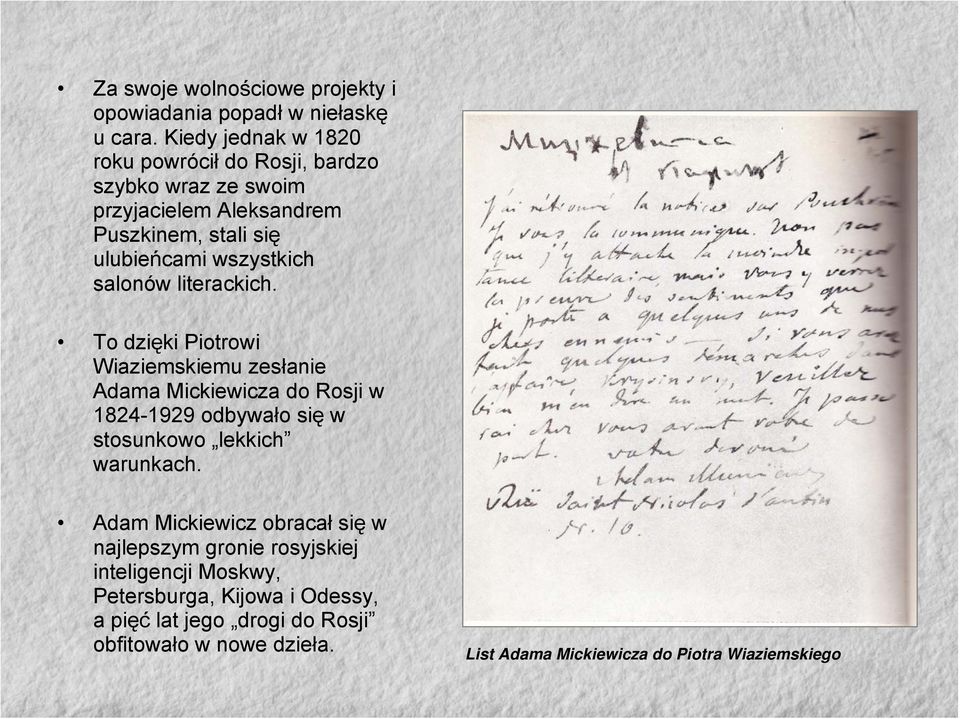 • Za swoje wolnościowe projekty i
opowiadania popadł w niełaskę
u cara. Kiedy jednak w 1820
roku powrócił do Rosji, bardzo
szybko wraz ze swoim
przyjacielem Aleksandrem
Puszkinem, stali się
ulubieńcami wszystkich
salonów literackich.
• To dzięki Piotrowi
Wiaziemskiemu zesłanie
Adama Mickiewicza do Rosji w
1824-1929 odbywało się w
stosunkowo „lekkich”
warunkach.
• Adam Mickiewicz obracał się w
najlepszym gronie rosyjskiej
inteligencji Moskwy,
Petersburga, Kijowa i Odessy,
a pięć lat jego „drogi do Rosji”
obfitowało w nowe dzieła.
J'ai rétrouvé la notice sur Pouchkin
Je vous la communique. Non pas
que j'y attache la moindre impor
tance littéraire, mais vous y verrez
la preuve des sentiments que
je porte a quelques uns de nos
chers ennemis — Si vous avez
fait quelques démarches dans
l'affaire Krysinsky, veuillez
bien m'en dire un mot. Je passe
rai chez vous avant votre de
part. votre devoué
Adam Mickiewicz
Rue Saint Nicolas d'antin
N. 10.
List Adama Mickiewicza do Piotra Wiaziemskiego